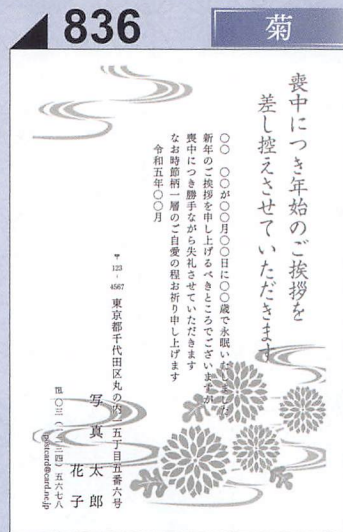 836
菊
喪中につき年始のご挨拶を
差し控えさせていただきます
〇〇 〇〇が〇〇月〇〇日に〇〇歳で永眠いたしました
新年のご挨拶を申し上げるべきところでございますが
喪中につき勝手ながら失礼させていただきます
なお時節柄一層のご自愛の程お祈り申し上げます
令和五年〇〇月
〒123-4567 東京都千代田区丸の内一五丁目五番六号
写真太郎
花子
☎〇三(一二三四)五六七八
postcard@card.ne.jp